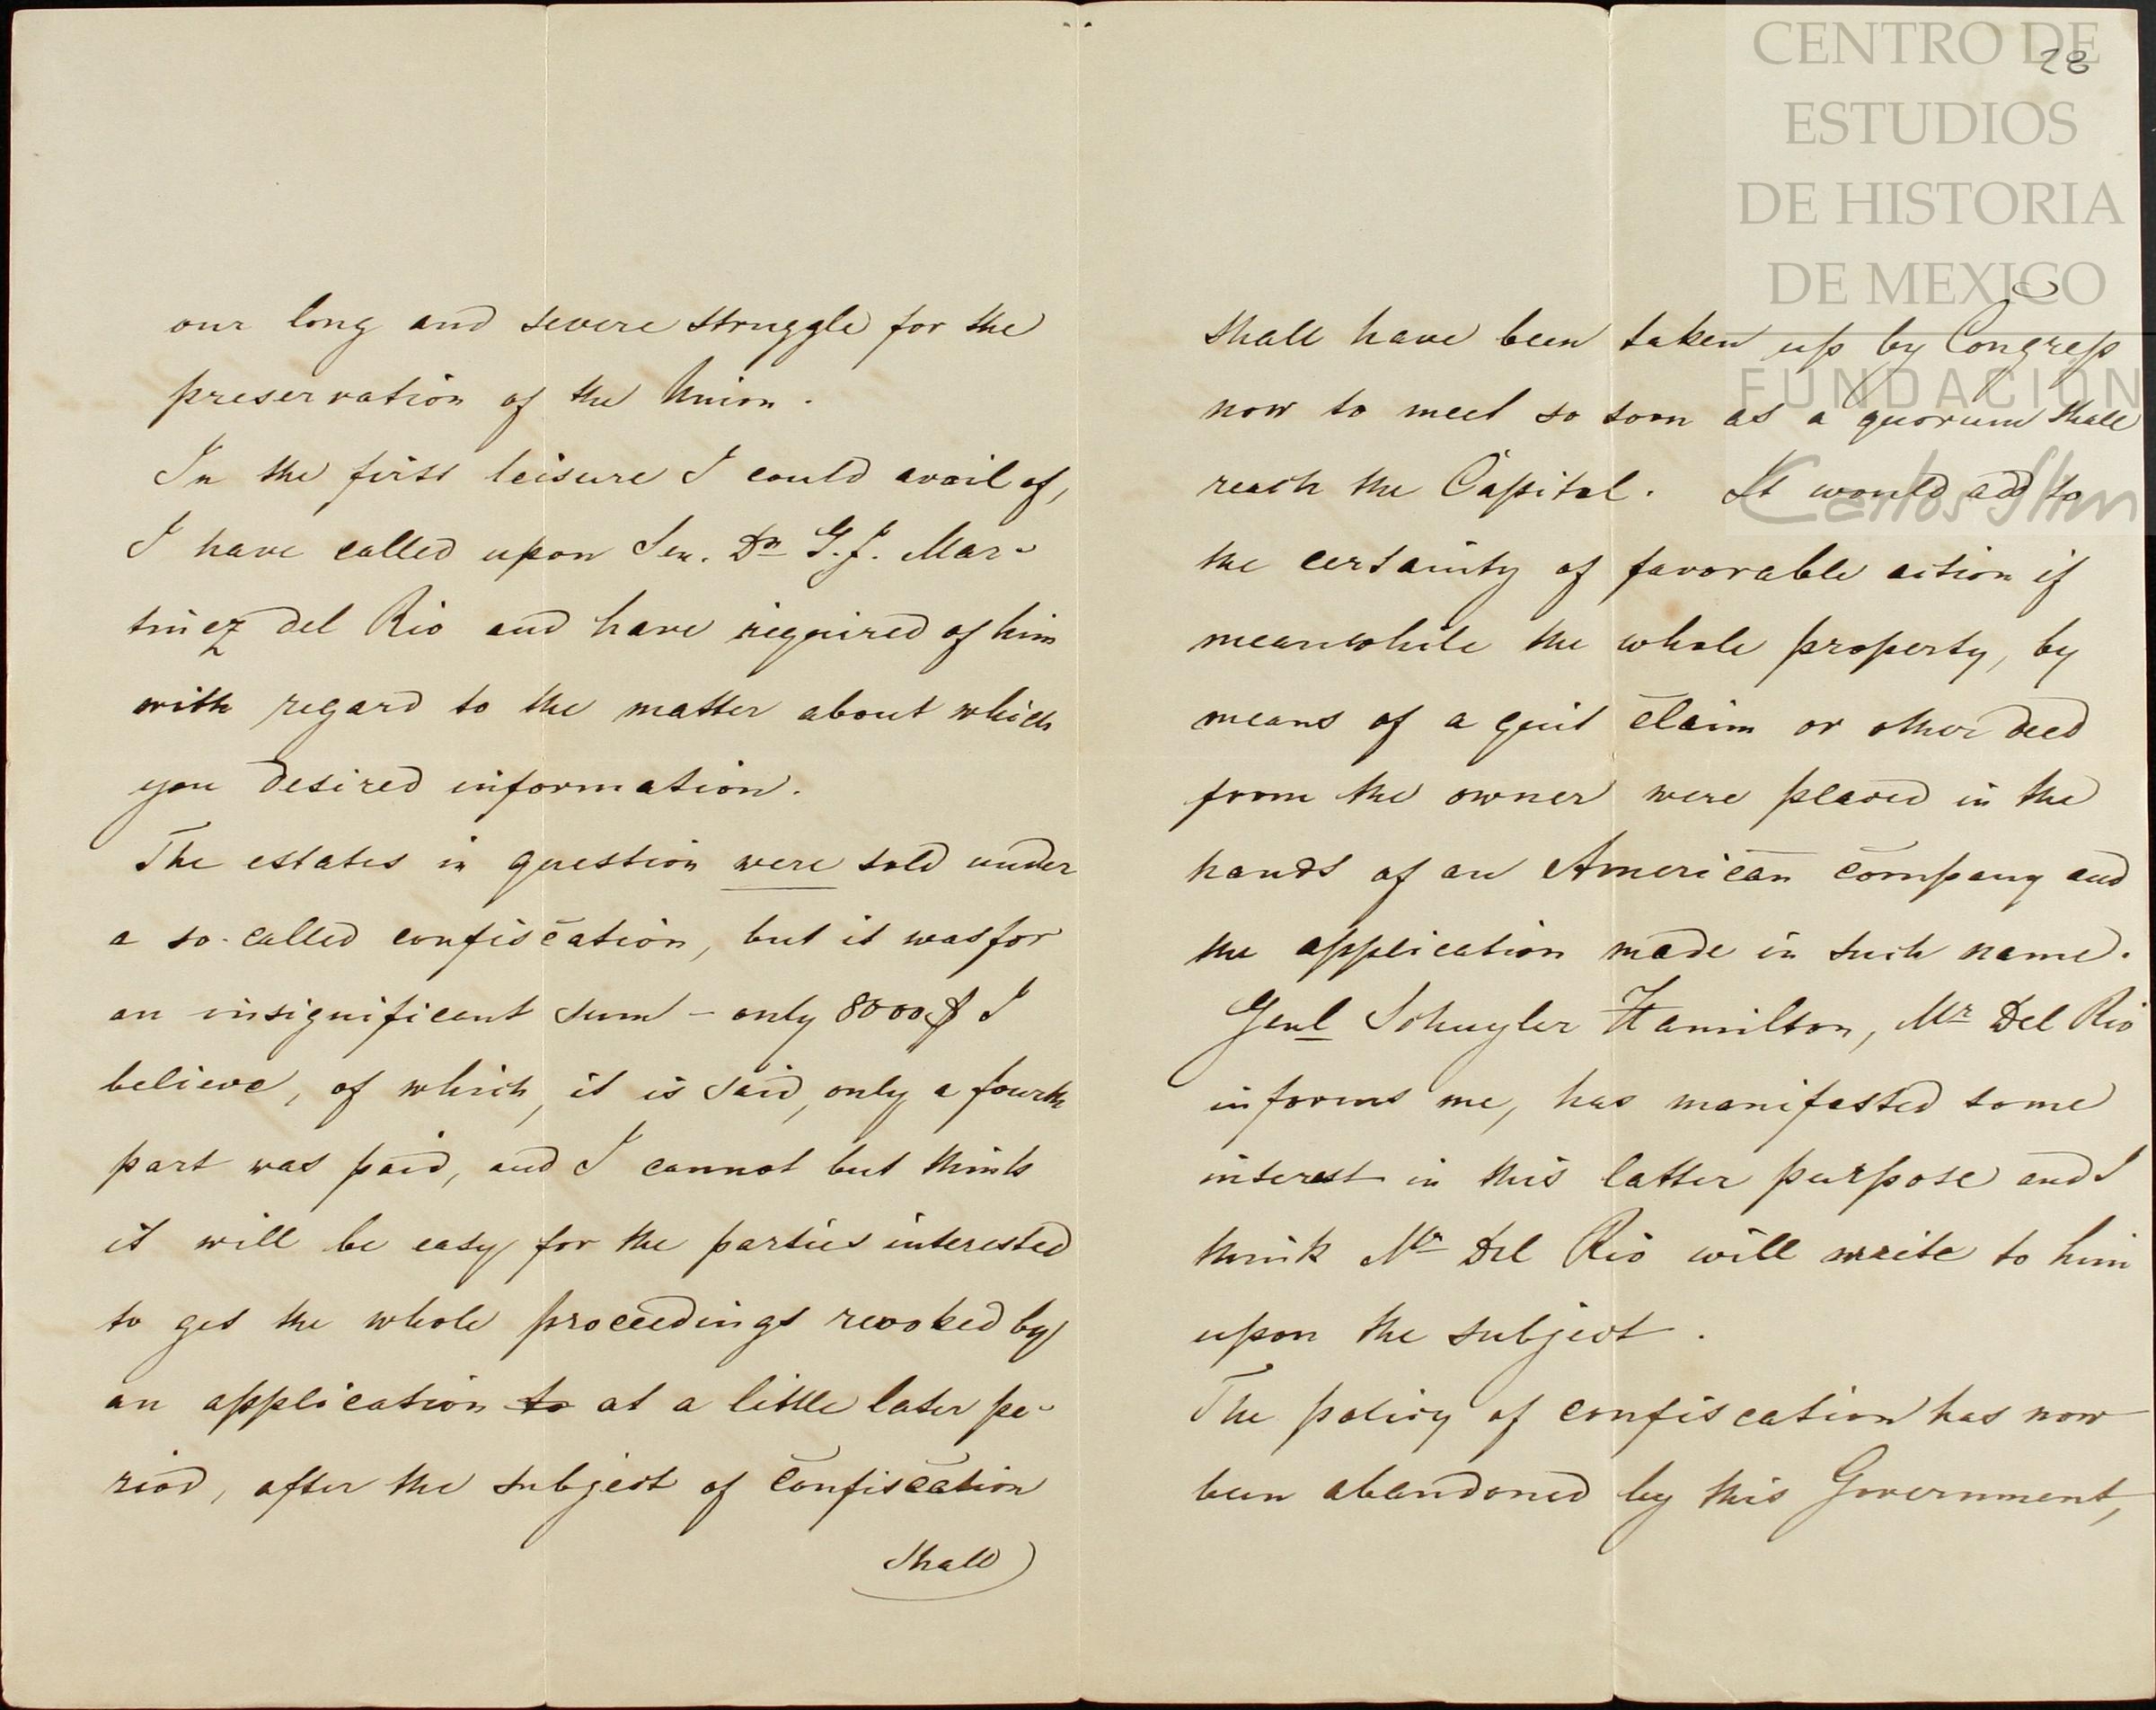 our long and severe struggle for the
preservation of the Union.
In the first leisure I could avail of,
I have called upon Sen. Dn G. J. Mar-
tinez del Rio and have riquired of him
with regard to the matter about which
you desired information.
The estates in question were sold under
a so-called confiscation, but it was for
an insignificant sum - only 8000$ I
believe, of which, it is said, only a fourth
part was paid, and I cannot but think
it will be easy for the parties interested
to get the whole proceedings revoked by
an application to at a little later pe-
riod, after the subject of confiscation
shall
28
shall have been taken up by Congress
now to meet so soon as a quorum shall
reach the Capital. It would add to
the certainty of favorable action if
meanwhile the whole property, by
means of a quit claim or other deed
from the owner were placed in the
hands of an American company and
the application made in such name.
Genl Schuyler Hamilton, Mr Del Rio
informs me, has manifested some
interest in this latter purpose and I
think Mr Del Rio will write to him
upon the subject.
The policy of confiscation has now
been abandoned by this Government,
CENTRO DE
ESTUDIOS
DE HISTORIA
DE MEXICO
FUNDACION
Carlos Slim